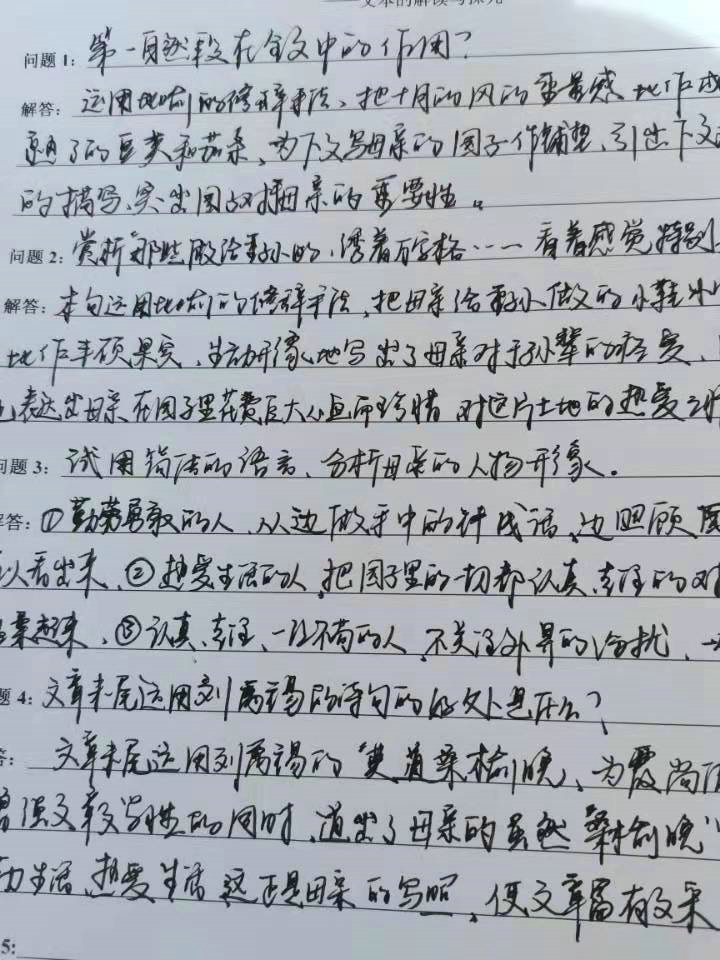 文本的解读与探究
问题 1: 第一自然段在全文中的作用?
解答: 运用比喻的修辞手法、把十月的风的重量感比作成
熟了的豆荚和茄子、为下文写母亲的园子作铺垫、引出下文
的描写、突出园对母亲的重要性。
问题 2: 赏析"那些散给孙的,透着万字格……看着感觉特别
解答: 本句运用比喻的修辞手法,把母亲给孙做的小鞋
比作丰硕果实,生动形象地写出了母亲对于孙辈的疼爱,
表达出母亲在园子里花费巨大心血而珍惜 对这片土地的热爱之情
问题 3: 试用简洁的语言、分析母亲的人物形象。
解答: ①勤劳勇敢的人,从边做手中的针线活,边照顾园
以看出来,②热爱生活的人,把园子里的一切都认真、专注的对
起来、③认真、专注、一丝不苟的人,不关注外界的纷扰、一
题 4: 文章末尾运用刘禹锡的诗句的好处是什么?
答: 文章末尾运用刘禹锡的"莫道桑榆晚、为霞尚
增强文章文学性的同时,道出了母亲的虽然"桑榆晚"
动生活、热爱生活 这正是母亲的写照,使文章富有文采
5: